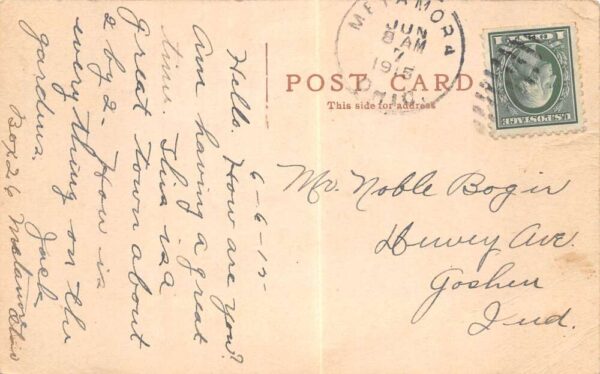 METAMORA
JUN
7
8 AM
1915
OHIO
U.S. POSTAGE
1 CENT 1
POST CARD
This side for address
6-6-15
Hello. How are you?
Am having a great
time. This is a
great town about
2 by 2. How is
every thing on the
gardens. Jack
Box 26 Metamora Ohio
Mr. Noble Bogir
Dewey Ave.
Goshen
Ind.